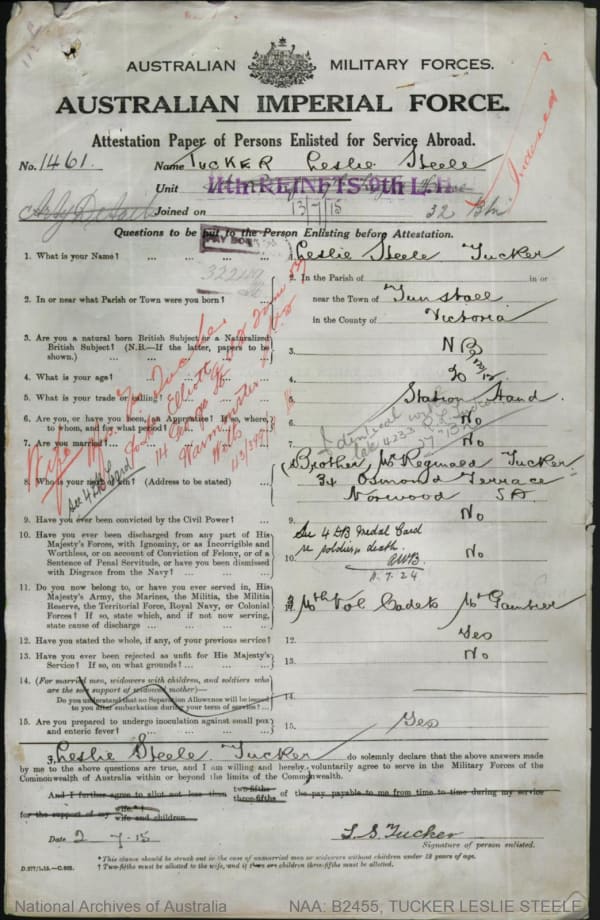 AUSTRALIAN MILITARY FORCES.
AUSTRALIAN IMPERIAL FORCE.
Attestation Paper of Persons Enlisted for Service Abroad.
No. 1461. Name TUCKER Leslie Steele
Unit 11th REINFTS 9th L.H.
Joined on 13/7/15 32 Bn
Indexed
Questions to be put to the Person Enlisting before Attestation.
1. What is your Name? ... Leslie Steele Tucker
2. In or near what Parish or Town were you born? ... 2. In the Parish of in or
near the Town of Tunstall
in the County of Victoria
3. Are you a natural born British Subject or a Naturalized
British Subject? (N.B.—If the latter, papers to be
shown.) ... 3. N B
4. What is your age? ...
5. What is your trade or calling? ... 5. Station Hand
6. Are you, or have you been, an Apprentice? If so, where,
to whom, and for what period? 6. No
7. Are you married? ... 7. No
8. Who is your next of kin? (Address to be stated) 8. (Brother) Mr Reginald Tucker
34 Osmond Terrace
Norwood S.A.
Wife
14 George St
Warminster
Wilts
See 4 DB Card
Identical with
27th Bn
9. Have you ever been convicted by the Civil Power? ... 9. No
10. Have you ever been discharged from any part of His
Majesty's Forces, with Ignominy, or as Incorrigible and
Worthless, or on account of Conviction of Felony, or of a
Sentence of Penal Servitude, or have you been dismissed
with Disgrace from the Navy? ... 10. No
See 4 DB Medal Card
re soldier's death.
11.7.24
11. Do you now belong to, or have you ever served in, His
Majesty's Army, the Marines, the Militia, the Militia
Reserve, the Territorial Force, Royal Navy, or Colonial
Forces? If so, state which, and if not now serving,
state cause of discharge ... Vol Cadets Mt Gambier
12. Have you stated the whole, if any, of your previous service? 12. Yes
13. Have you ever been rejected as unfit for His Majesty's
Service? If so, on what grounds? ... 13. No
14. (For married men, widowers with children, and soldiers who
are the sole support of widowed mother)—
Do you understand that no Separation Allowance will be issued
to you after embarkation during your term of service? ... 14.
15. Are you prepared to undergo inoculation against small pox
and enteric fever? ... 15. Yes
I, Leslie Steele Tucker do solemnly declare that the above answers made
by me to the above questions are true, and I am willing and hereby voluntarily agree to serve in the Military Forces of the
Commonwealth of Australia within or beyond the limits of the Commonwealth.
And I further agree to allot not less than two-fifths three-fifths of the pay payable to me from time to time during my service
for the support of my wife.*† wife and children.
Date 2-7-15 L S Tucker
Signature of person enlisted.
*This clause should be struck out in the case of unmarried men or widowers without children under 18 years of age.
† Two-fifths must be allotted to the wife, and if there are children three-fifths must be allotted.
National Archives of Australia NAA: B2455, TUCKER LESLIE STEELE